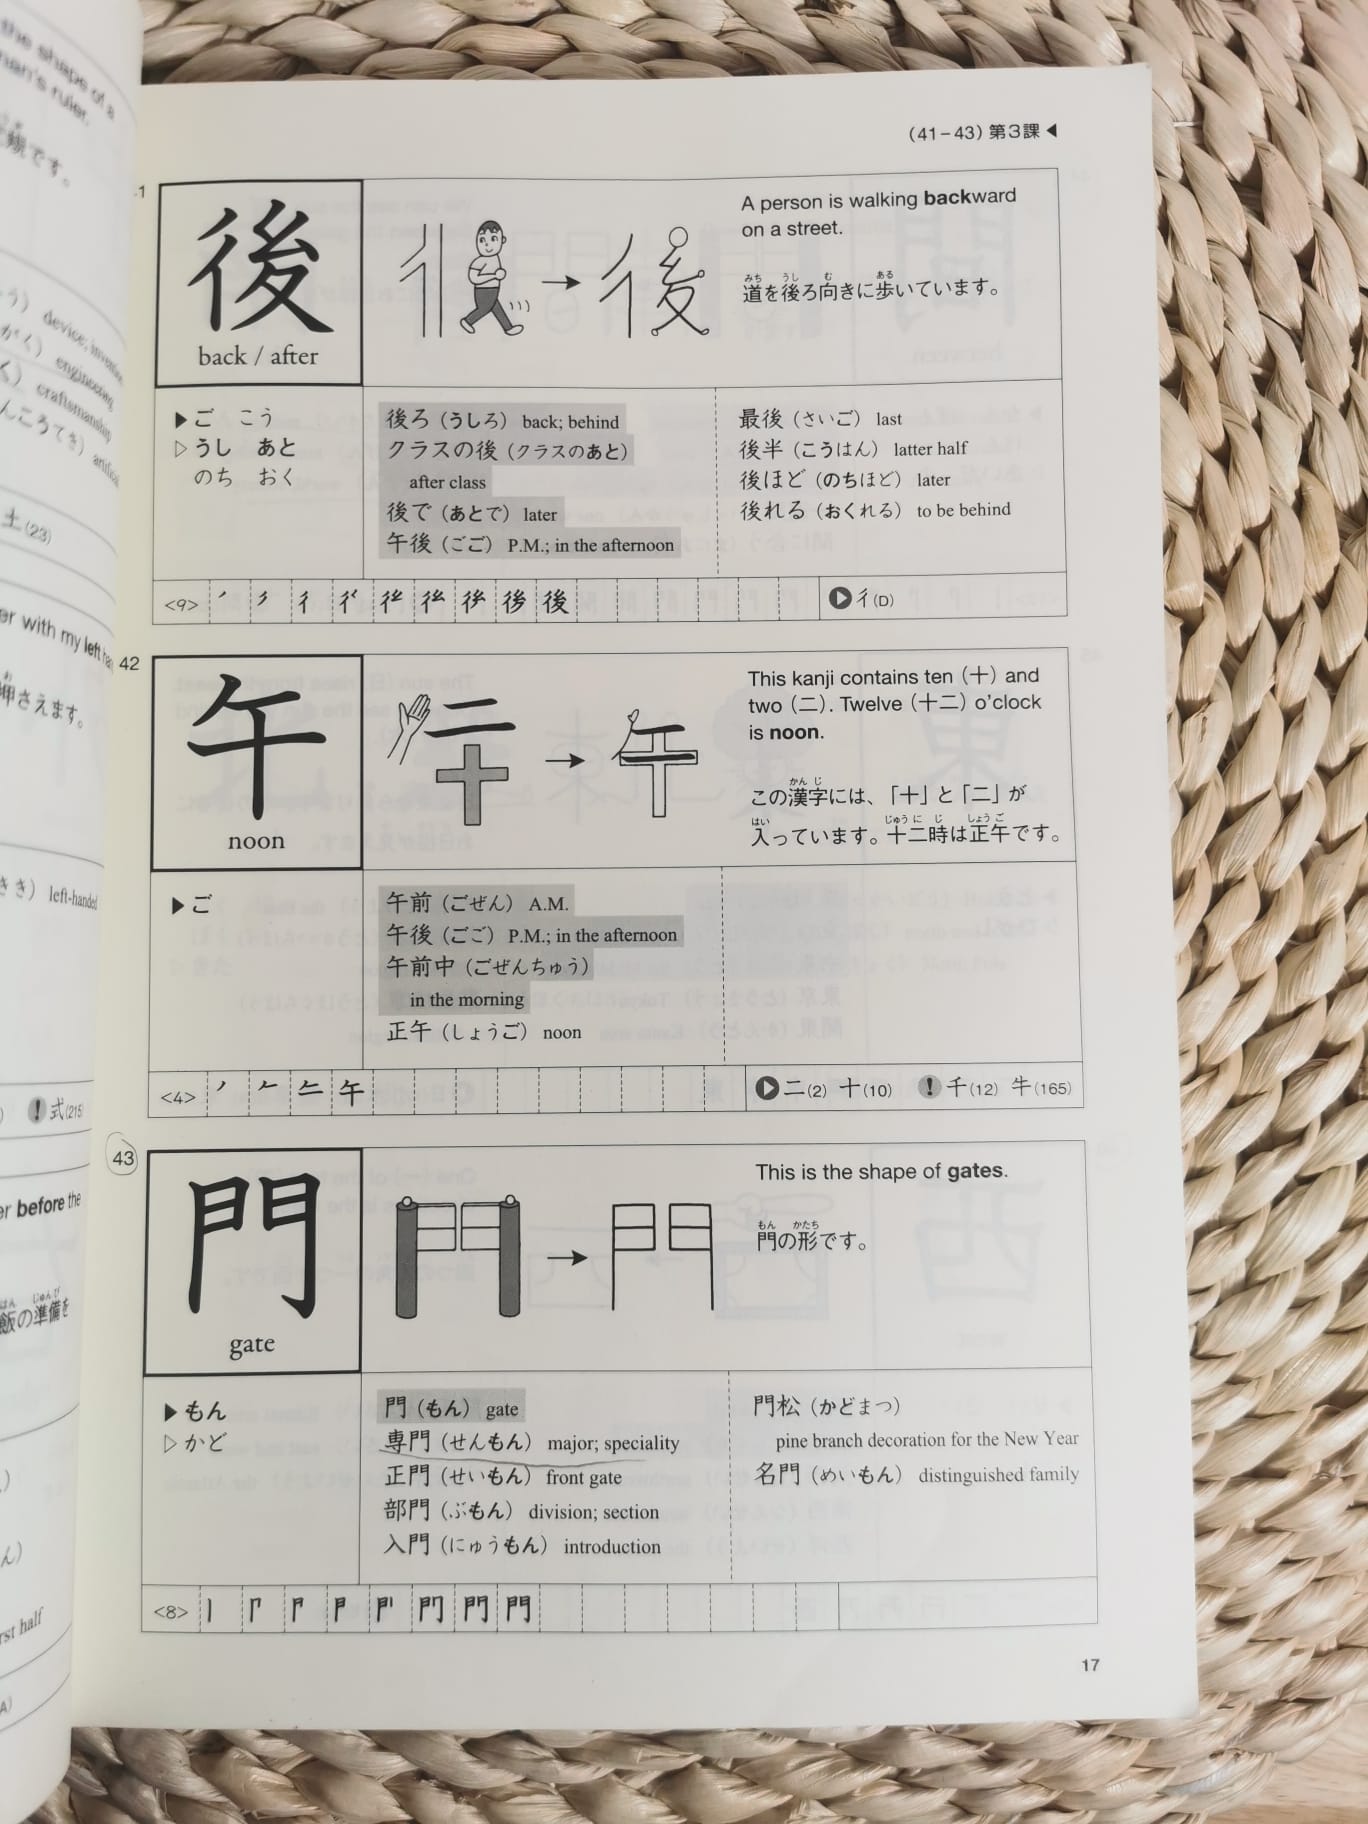 the shape of a
man's ruler.
です。
device; invention
engineering
craftsmanship
土(23)
er with my left
押さえます。
left-handed
式(215)
er before the
飯の準備を
はん じゅんび
rst half
(41－43) 第3課◀
後
back / after
A person is walking backward
on a street.
みち うし む ある
道を後ろ向きに歩いています。
▶ご こう
▷うし あと
のち おく
後ろ（うしろ） back; behind
クラスの後（クラスのあと）
after class
後で（あとで） later
午後（ごご） P.M.; in the afternoon
最後（さいご） last
後半（こうはん） latter half
後ほど（のちほど） later
後れる（おくれる） to be behind
<9> 後
▶彳(D)
42
午
noon
This kanji contains ten（十）and
two（二）. Twelve（十二）o'clock
is noon.
かん じ
この漢字には、「十」と「二」が
はい じゅう に じ しょう ご
入っています。十二時は正午です。
▶ご
午前（ごぜん） A.M.
午後（ごご） P.M.; in the afternoon
午前中（ごぜんちゅう）
in the morning
正午（しょうご） noon
<4> 午
▶二(2) 十(10) ！千(12) 牛(165)
43
門
gate
This is the shape of gates.
もん かたち
門の形です。
▶もん
▷かど
門（もん） gate
専門（せんもん） major; speciality
正門（せいもん） front gate
部門（ぶもん） division; section
入門（にゅうもん） introduction
門松（かどまつ）
pine branch decoration for the New Year
名門（めいもん） distinguished family
<8> 門
17